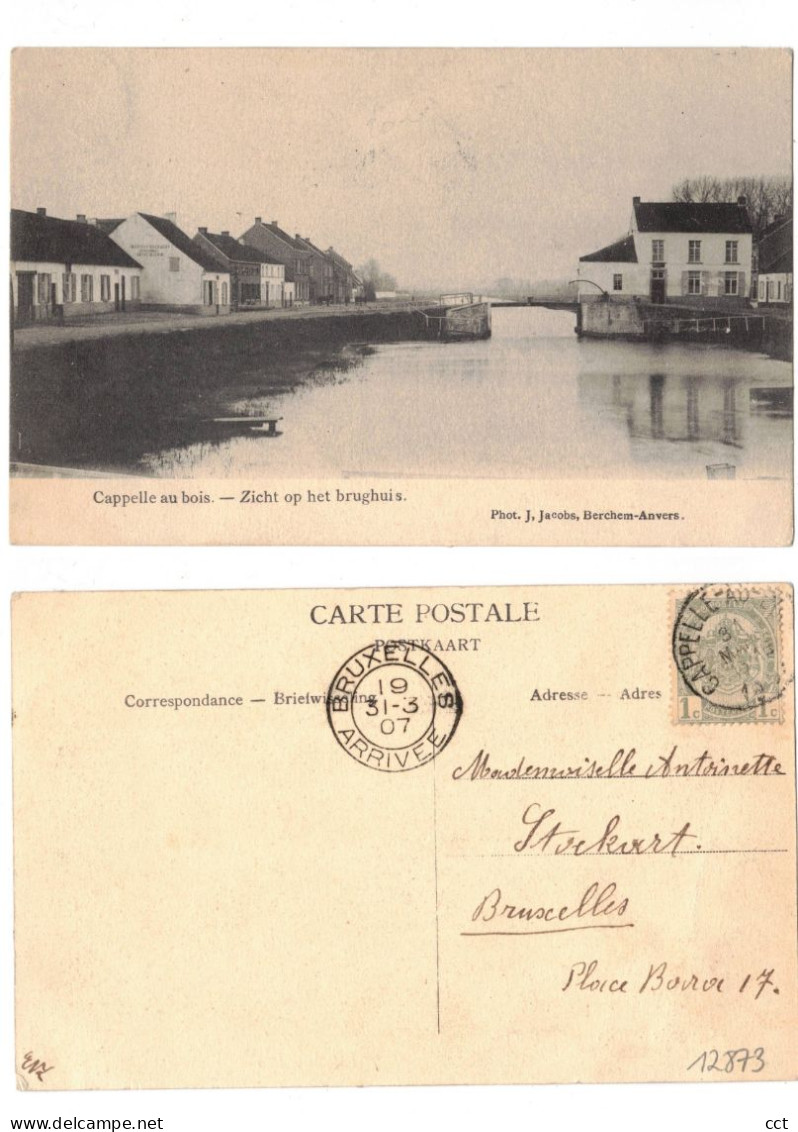 Cappelle au bois. — Zicht op het brughuis.
Phot. J, Jacobs, Berchem-Anvers.
CARTE POSTALE
POSTKAART
Correspondance — Briefwisseling
Adresse — Adres
BRUXELLES
19
31-3
07
ARRIVEE
CAPPELLE-AU-
31
1c 1c
Mademoiselle Antoinette
Stockart.
Bruxelles
Place Bara 17.
12873
Delcampe.net
cct